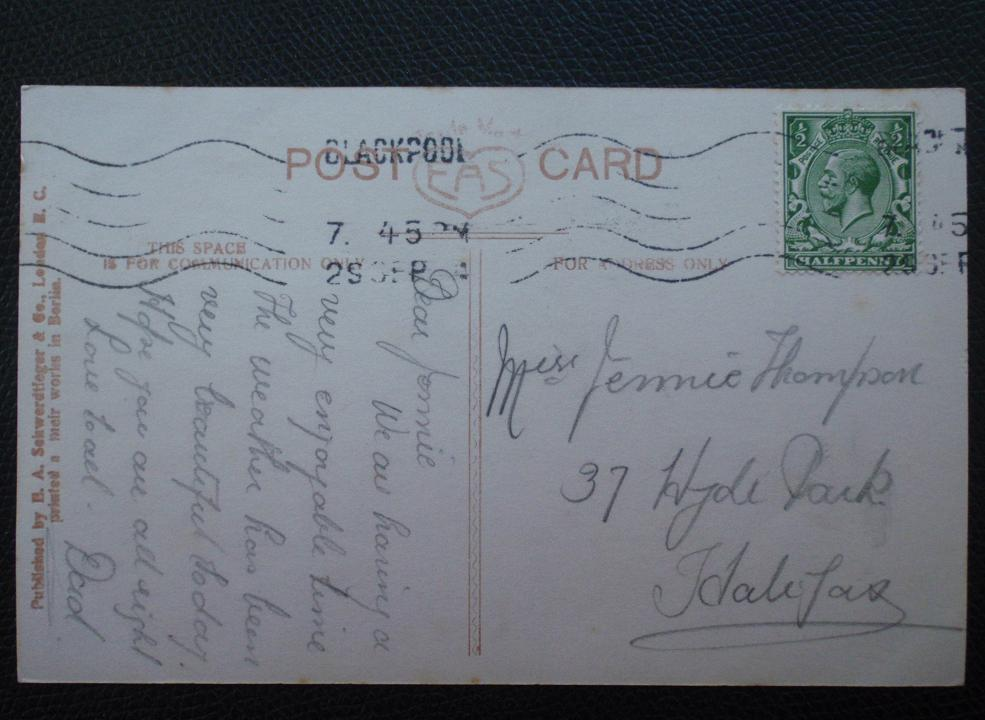 POST CARD
EAS
BLACKPOOL
7. 45 PM
THIS SPACE
IS FOR COMMUNICATION ONLY
FOR ADDRESS ONLY
½ ½
HALFPENNY
7. 45
Dear Jennie
We are having a
very enjoyable time
The weather has been
very beautiful today.
Hope you are all right
Love to all.
Dad
Miss Jennie Thompson
37 Hyde Park
Halifax
Published by E. A. Schwerdtfeger & Co., London E. C.
printed a their works in Berlin.